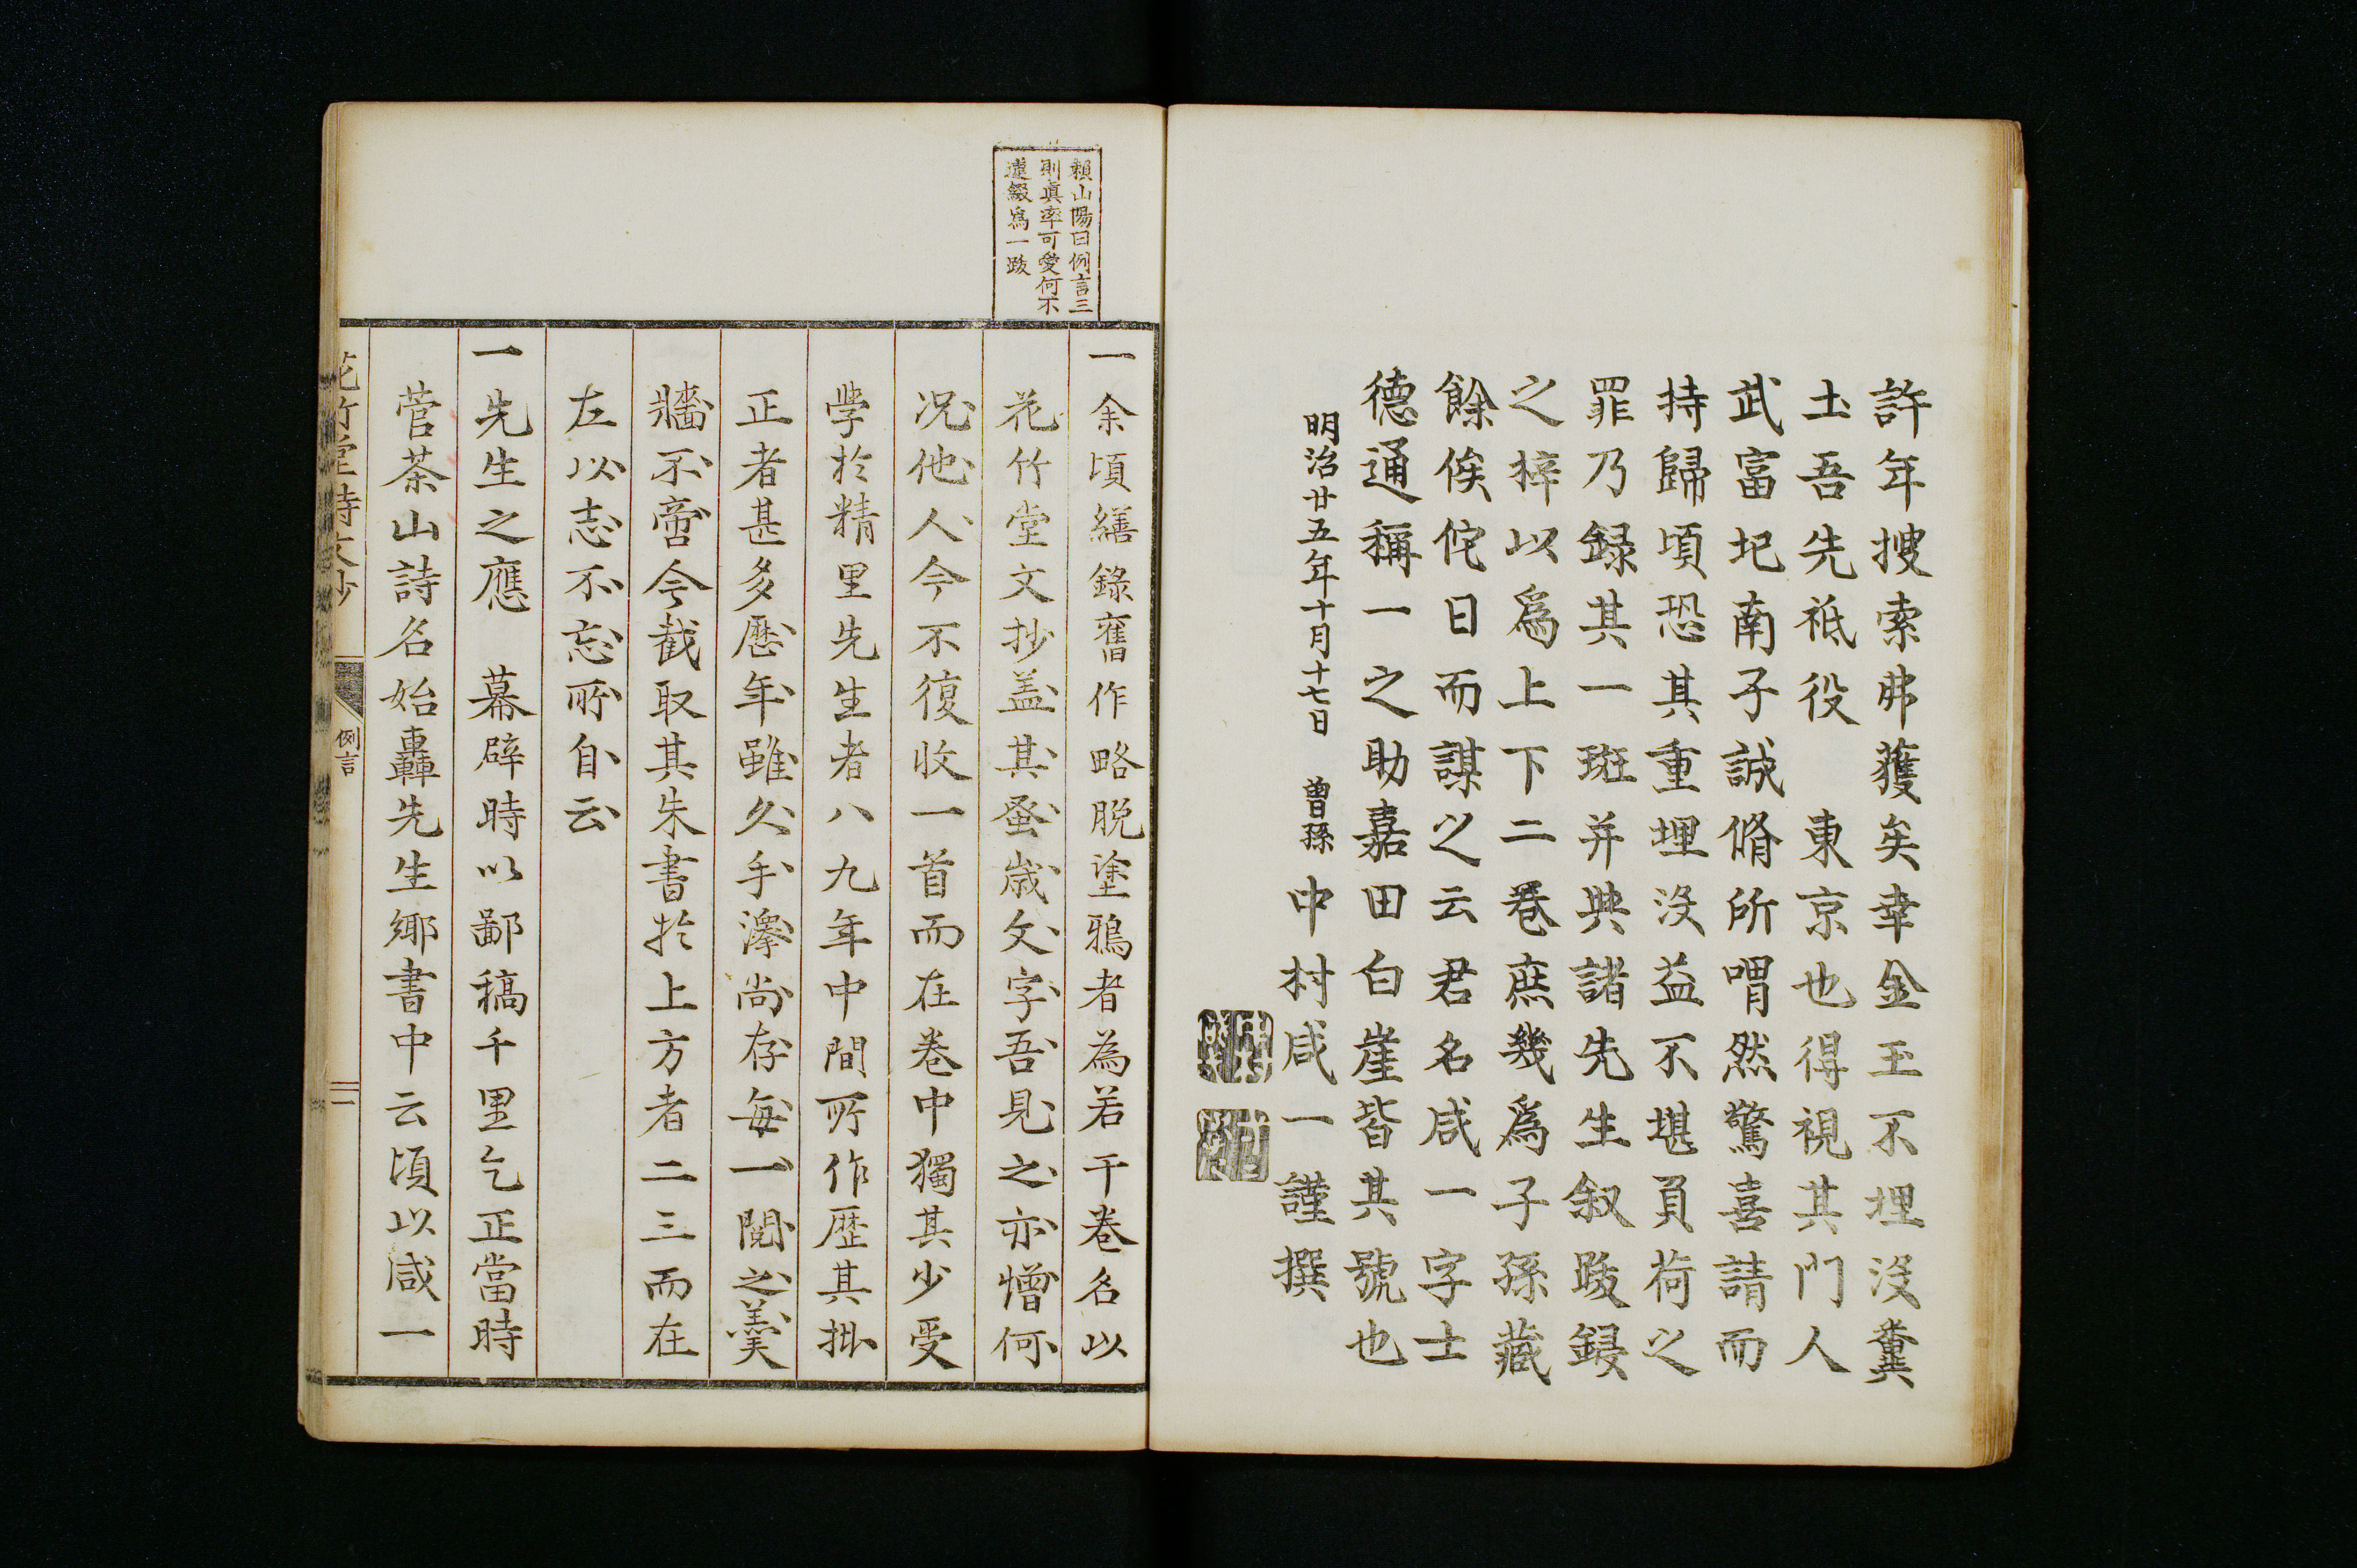 許年搜索弗獲矣幸金玉不埋沒糞
土吾先祗役　東京也得視其門人
武富圯南子誠脩所喟然驚喜請而
持歸頃恐其重埋沒益不堪負荷之
罪乃録其一斑并典諸先生叙跋鋟
之梓以爲上下二卷庶幾爲子孫藏
餘俟佗日而謀之云君名咸一字士
德通稱一之助嘉田白崖皆其號也
明治廿五年十月十七日　曽孫中村咸一謹撰
賴山陽曰例言三
則眞率可愛何不
連綴爲一跋
一余頃繕錄舊作略脱塗鴉者為若干卷名以
花竹堂文抄盖其蚤歳文字吾見之亦憎何
况他人今不復收一首而在卷中獨其少受
學於精里先生者八九年中間所作歴其掛
正者甚多歴年雖久手澤尚存每一閲之羹
牆不啻今截取其朱書於上方者二三而在
左以志不忘所自云
一先生之應　幕辟時以鄙稿千里乞正當時
菅茶山詩名始轟先生鄉書中云頃以咸一
花竹堂詩文抄　例言　二